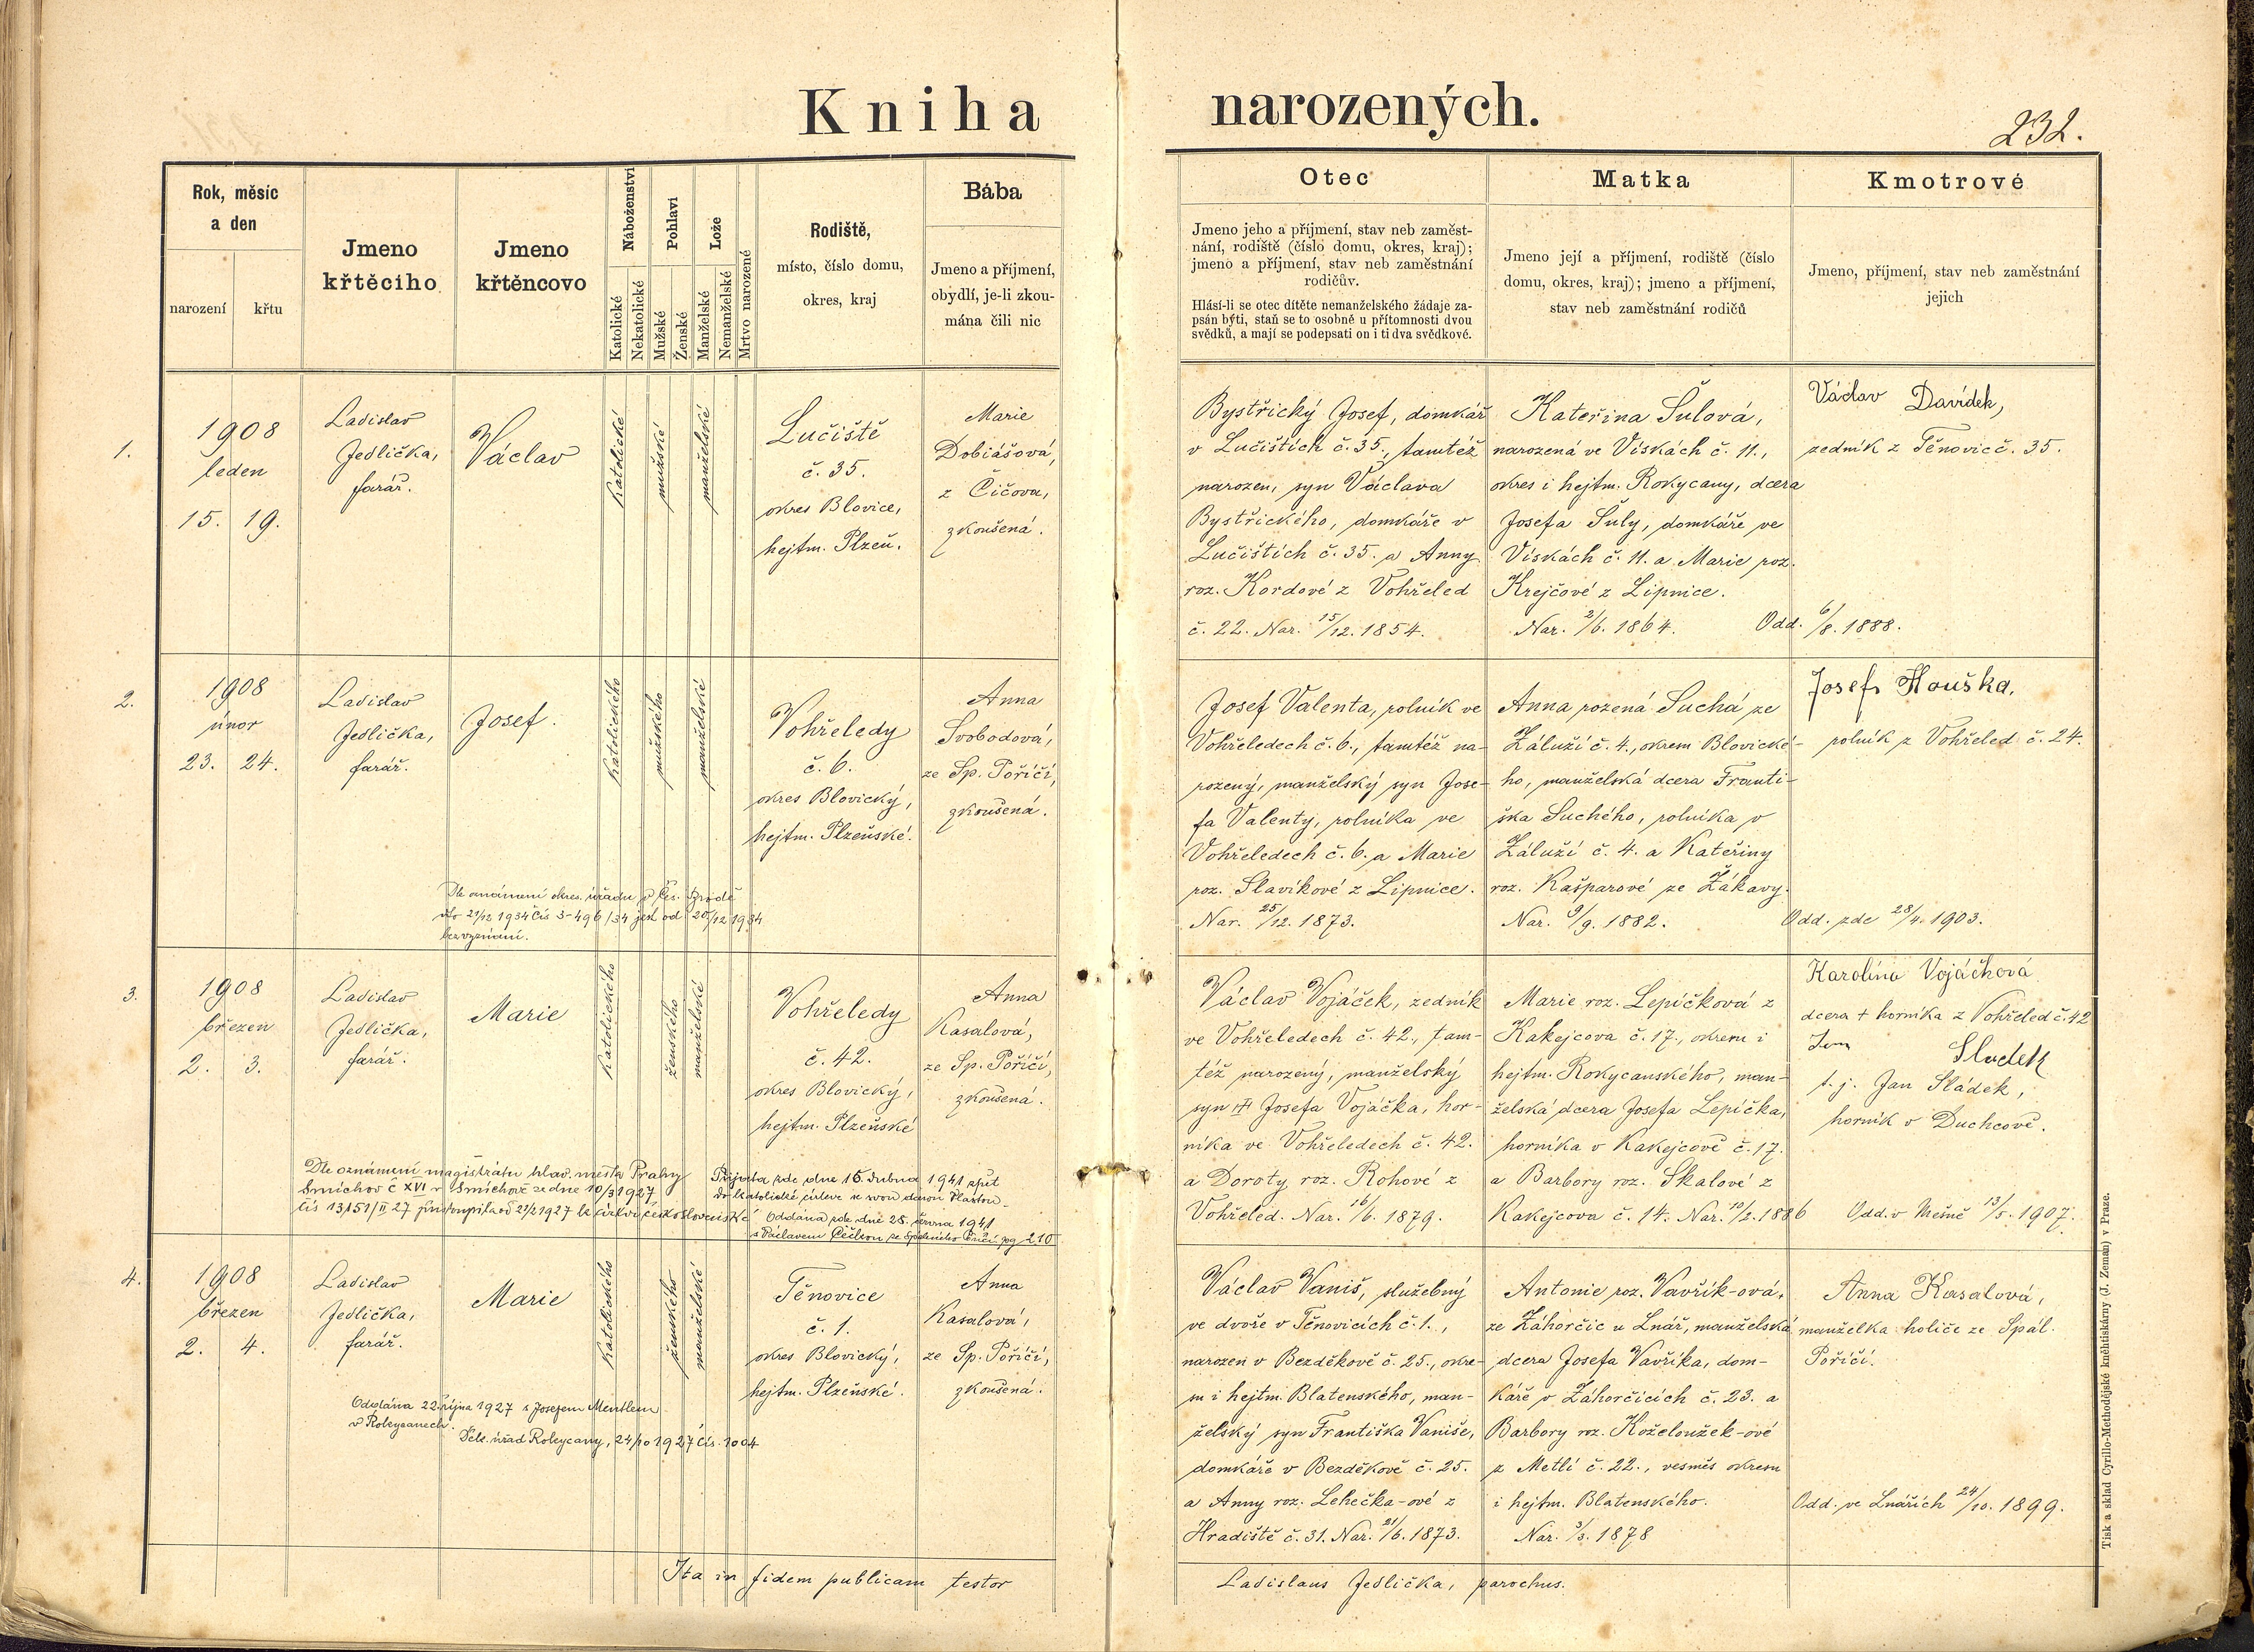 Kniha narozených.
232.
Rok, měsíc
a den
narození
křtu
Jmeno
křtěcího
Jmeno
křtěncovo
Náboženství
Katolické
Nekatolické
Pohlaví
Mužské
Ženské
Lože
Manželské
Nemanželské
Mrtvo narozené
Rodiště,
místo, číslo domu,
okres, kraj
Bába
Jmeno a příjmení,
obydlí, je-li zkou-
mána čili nic
Otec
Jmeno jeho a příjmení, stav neb zaměst-
nání, rodiště (číslo domu, okres, kraj);
jmeno a příjmení, stav neb zaměstnání
rodičův.
Hlásí-li se otec dítěte nemanželského žádaje za-
psán býti, staň se to osobně u přítomnosti dvou
svědků, a mají se podepsati on i ti dva svědkové.
Matka
Jmeno její a příjmení, rodiště (číslo
domu, okres, kraj); jmeno a příjmení,
stav neb zaměstnání rodičů
Kmotrové
Jmeno, příjmení, stav neb zaměstnání
jejich
1.
1908
leden
15. 19.
Ladislav
Jedlička,
farář.
Václav
Katolické
mužské
manželské
Lučiště
č. 35.
okres Blovice,
hejtm. Plzeň.
Marie
Dobiášová,
z Čičova,
zkoušená.
Bystřický Josef, domkář
v Lučištích č. 35., tamtéž
narozen, syn Václava
Bystřického, domkáře v
Lučištích č. 35. a Anny
roz. Kordové z Vohřeled
č. 22. Nar. 15/12. 1854.
Kateřina Šulová,
narozená ve Vískách č. 11.,
okres i hejtm. Rokycany, dcera
Josefa Šuly, domkáře ve
Vískách č. 11. a Marie roz.
Krejčové z Lipnice.
Nar. 2/6. 1864.
Václav Davídek,
zedník z Těnovic č. 35.
Odd. 6/8. 1888.
2.
1908
únor
23. 24.
Ladislav
Jedlička,
farář.
Josef.
Katolického
mužského
manželské
Vohřeledy
č. 6.
okres Blovický,
hejtm. Plzeňské.
Anna
Svobodová,
ze Sp. Poříčí,
zkoušená.
Dle oznámení okres. úřadu v Čes. Brodě
bez vyznání.
Josef Valenta, rolník ve
Vohřeledech č. 6., tamtéž na-
rozený, manželský syn Jose-
fa Valenty, rolníka ve
Vohřeledech č. 6. a Marie
roz. Slavíkové z Lipnice.
Nar. 25/12. 1873.
Anna rozená Suchá ze
Záluží č. 4., okrem Blovické-
ho, manželská dcera Franti-
ška Suchého, rolníka v
Záluží č. 4. a Kateřiny
roz. Kašparové ze Žákavy.
Nar. 9/9. 1882.
Josef Houška,
rolník z Vohřeled č. 24.
Odd. zde 28/4. 1903.
3.
1908
březen
2. 3.
Ladislav
Jedlička,
farář.
Marie
Katolického
ženského
manželské
Vohřeledy
č. 42.
okres Blovický,
hejtm. Plzeňské
Anna
Kasalová,
ze Sp. Poříčí,
zkoušená.
Dle oznámení magistrátu hlav. města Prahy
Smíchov č XVI v Smíchově ze dne 10/3 1927
Přijata zde dne 16. dubna 1941 zpět
do katolické církve
Oddána zde dne 28. června 1941
Václav Vojáček, zedník
ve Vohřeledech č. 42., tam-
též narozený, manželský
syn Josefa Vojáčka, hor-
níka ve Vohřeledech č. 42.
a Doroty roz. Rohové z
Vohřeled. Nar. 16/6. 1879.
Marie roz. Lepíčková z
Kakejcova č. 17., okrem i
hejtm. Rokycanského, man-
želská dcera Josefa Lepíčka,
horníka v Kakejcově č. 17.
a Barbory roz. Skalové z
Kakejcova č. 14. Nar. 10/2. 1886
Karolína Vojáčková
dcera + horníka z Vohřeled č. 42
Sladek
t. j. Jan Sládek,
horník v Duchcově.
Odd. v Mešně 13/5. 1907.
4.
1908
březen
2. 4.
Ladislav
Jedlička,
farář.
Marie
Katolického
ženského
manželské
Těnovice
č. 1.
okres Blovický,
hejtm. Plzeňské.
Anna
Kasalová,
ze Sp. Poříčí,
zkoušená.
Oddána 22. října 1927 s Josefem Mentlem
v Rokycanech.
Děk. úřad Rokycany, 24/10 1927 čís. 1004
Václav Vaniš, služebný
ve dvoře v Těnovicích č. 1.,
narozen v Bezděkově č. 25., okre-
su i hejtm. Blatenského, man-
želský syn Františka Vaniše,
domkáře v Bezděkově č. 25.
a Anny roz. Lehečka-ové z
Hradiště č. 31. Nar. 21/6. 1873.
Antonie roz. Vavřík-ová,
ze Záhorčic u Lnář, manželská
dcera Josefa Vavříka, dom-
káře v Záhorčicích č. 23. a
Barbory roz. Koželoužek-ové
z Metlí č. 22., vesměs okresu
i hejtm. Blatenského.
Nar. 3/3. 1878
Anna Kasalová,
manželka holiče ze Spál.
Poříčí.
Odd. ve Lnářích 24/10. 1899.
Ita in fidem publicam testor
Ladislaus Jedlička, parochus.
Tisk a sklad Cyrillo-Methodějské kněhtiskárny (J. Zeman) v Praze.